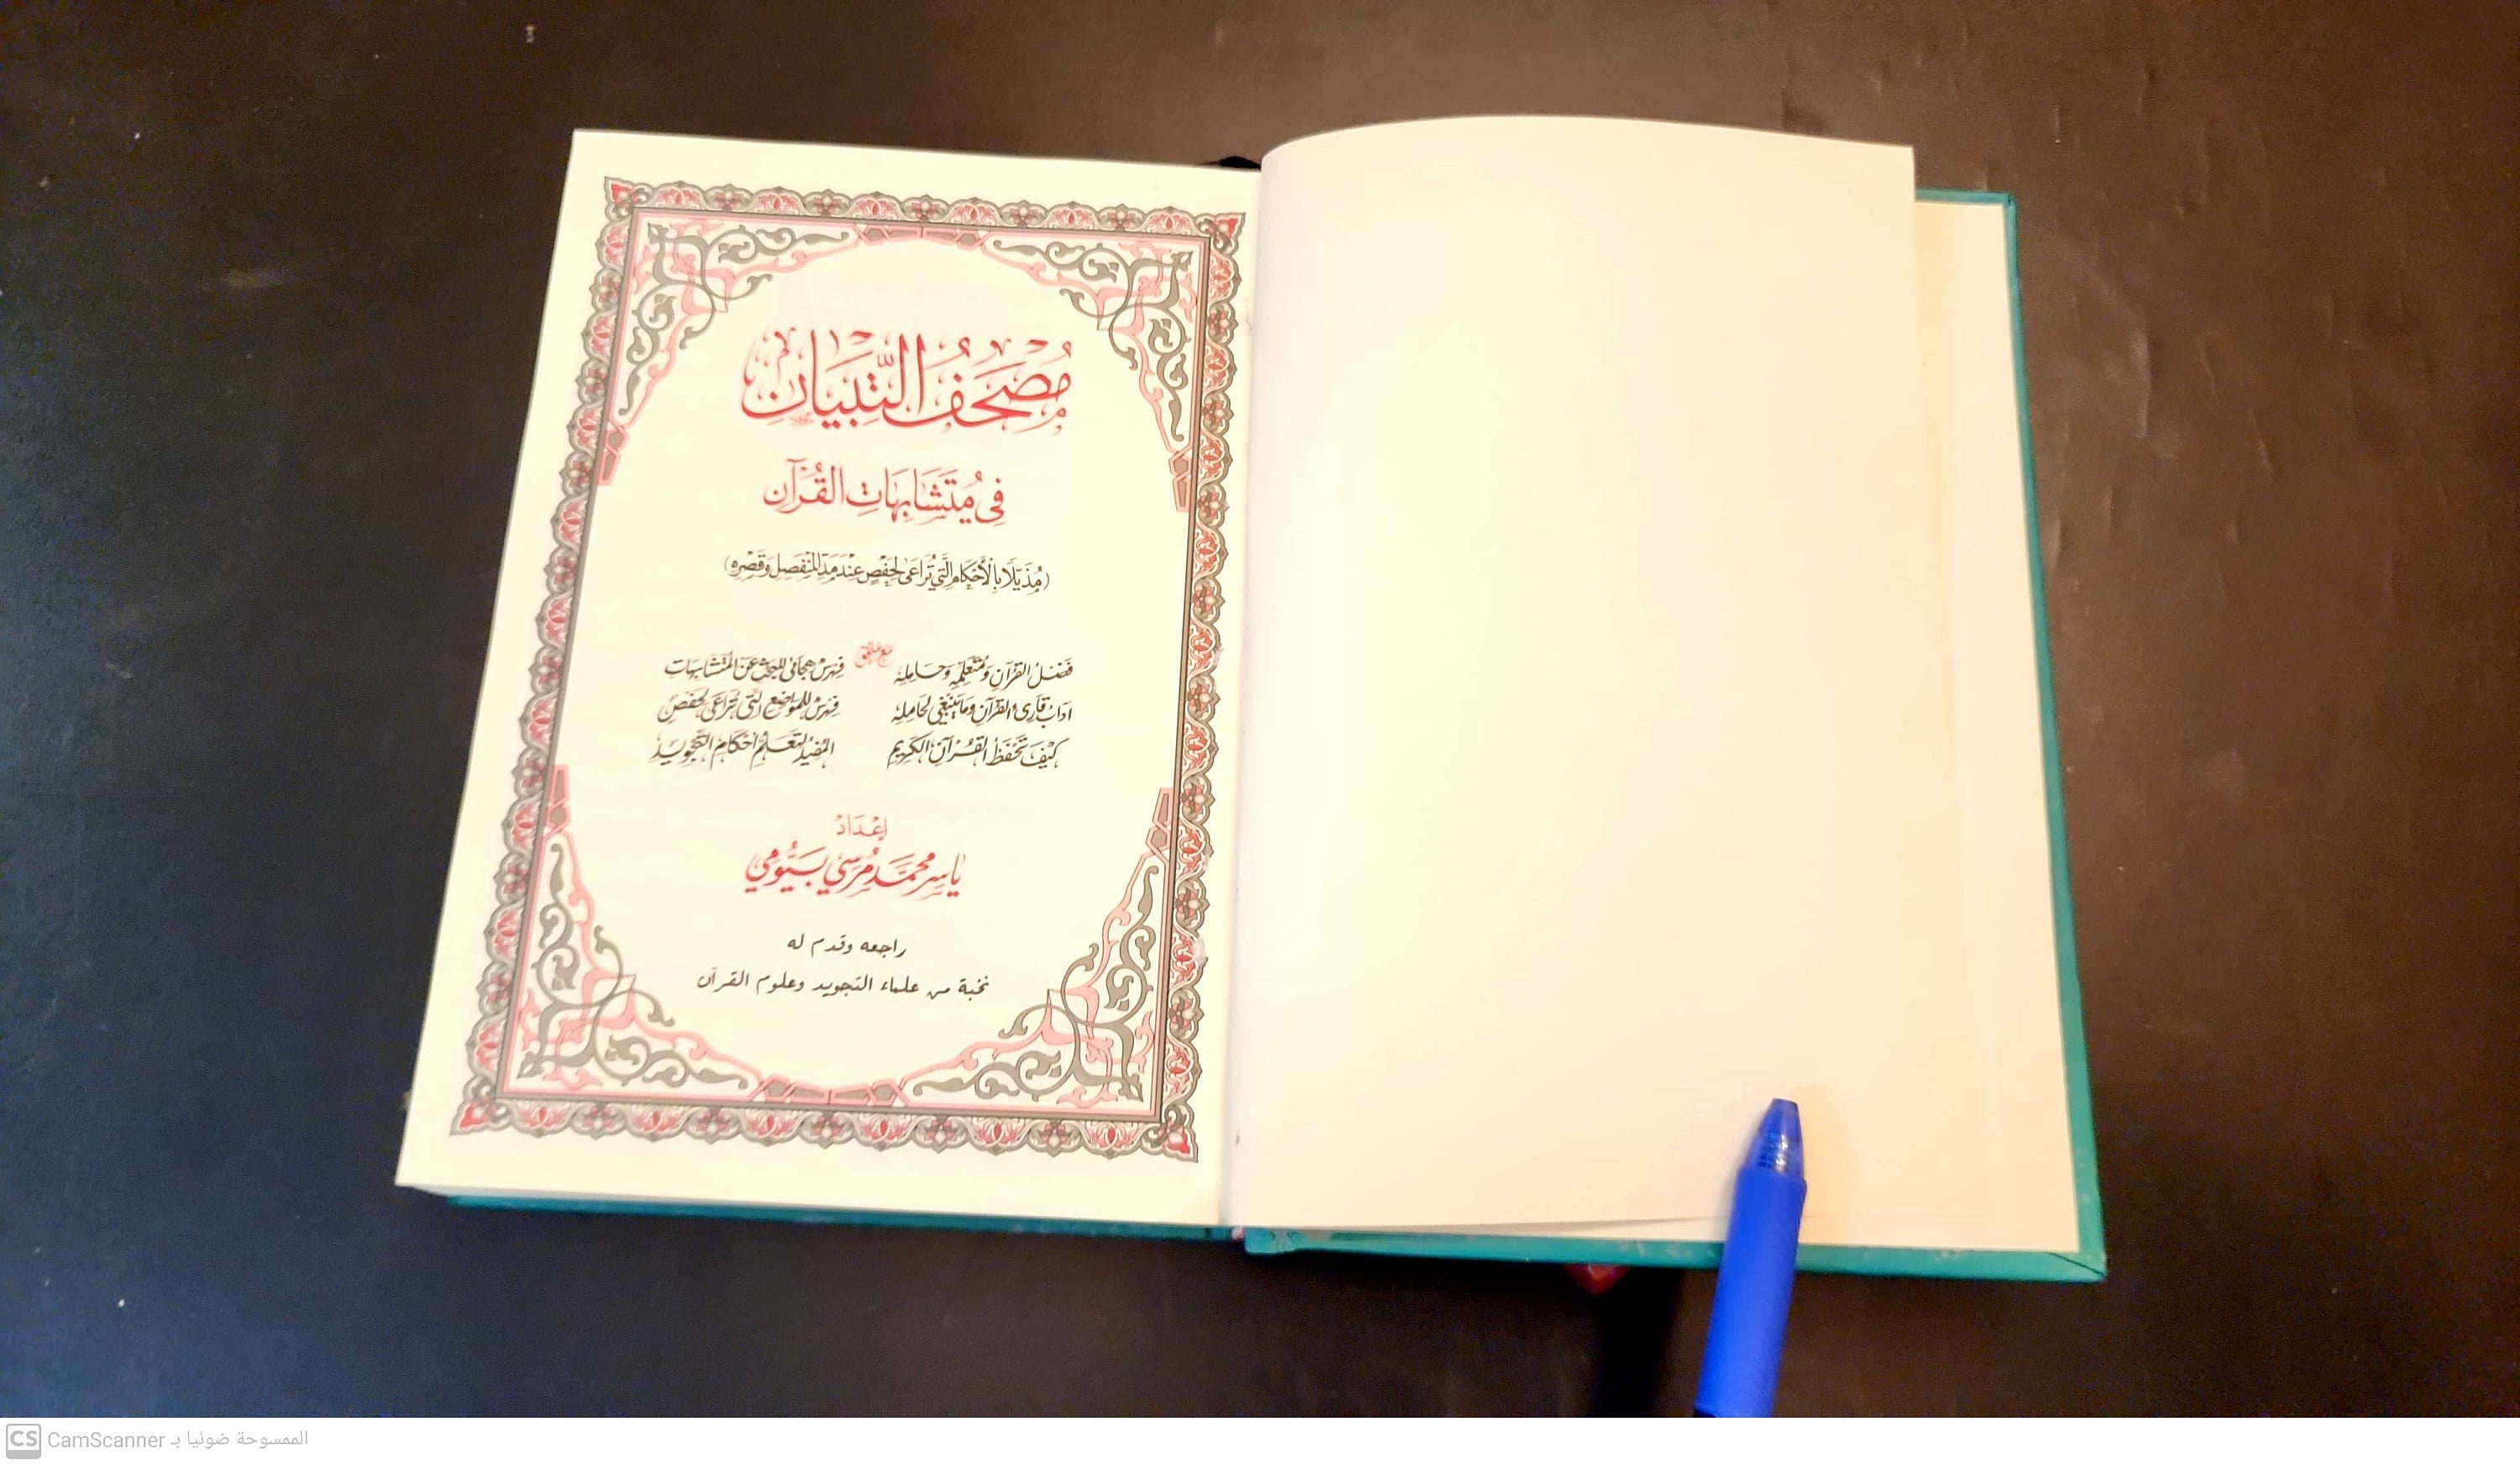 مُصْحَفُ التِّبْيَان
فِي مُتَشَابِهَاتِ الْقُرْآن
(مُذَيَّلًا بِالْأَحْكَامِ الَّتِي تُرَاعَى لِحَفْصٍ عِنْدَ مَدِّ الْمُنْفَصِلِ وَقَصْرِهِ)
مع ملحق
فَضْلُ الْقُرْآنِ وَمُتَعَلِّمِهِ وَحَامِلِهِ
آدَابُ قَارِئِ الْقُرْآنِ وَمَا يَنْبَغِي لِحَامِلِهِ
كَيْفَ تَحْفَظُ الْقُرْآنَ الْكَرِيم
فِهْرِسٌ هِجَائِيٌّ لِلْبَحْثِ عَنِ الْمُتَشَابِهَات
فِهْرِسٌ لِلْمَوَاضِعِ الَّتِي تُرَاعَى لِحَفْص
الْمُفِيدُ لِتَعَلُّمِ أَحْكَامِ التَّجْوِيد
إِعْدَادُ
يَاسِر مُحَمَّد مُرْسِي بَيُّومِي
راجعه وقدم له
نخبة من علماء التجويد وعلوم القرآن
CS CamScanner الممسوحة ضوئيا بـ